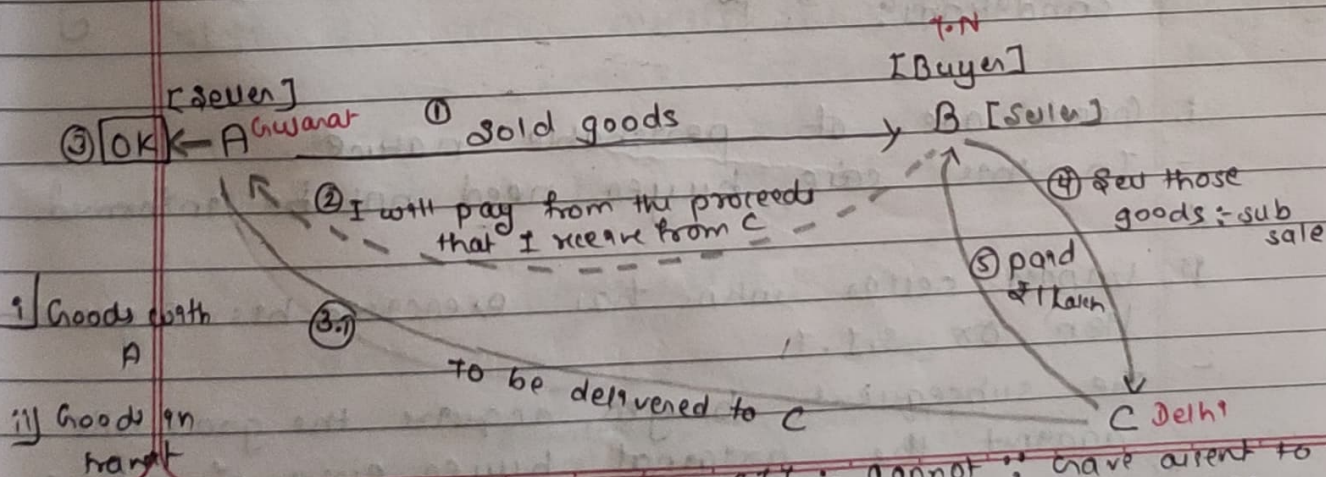 T.N
[Buyer]
[Seller]
③ OK ← A Gujarat ① Sold goods B [Seller]
② I will pay from the proceeds
that I receive from C
④ Sell those
goods :- sub
sale
⑤ paid
₹1 Lakh
i) Goods with
A
3.1
To be delivered to C
C Delhi
ii) Goods in
transit
cannot :: gave assent to